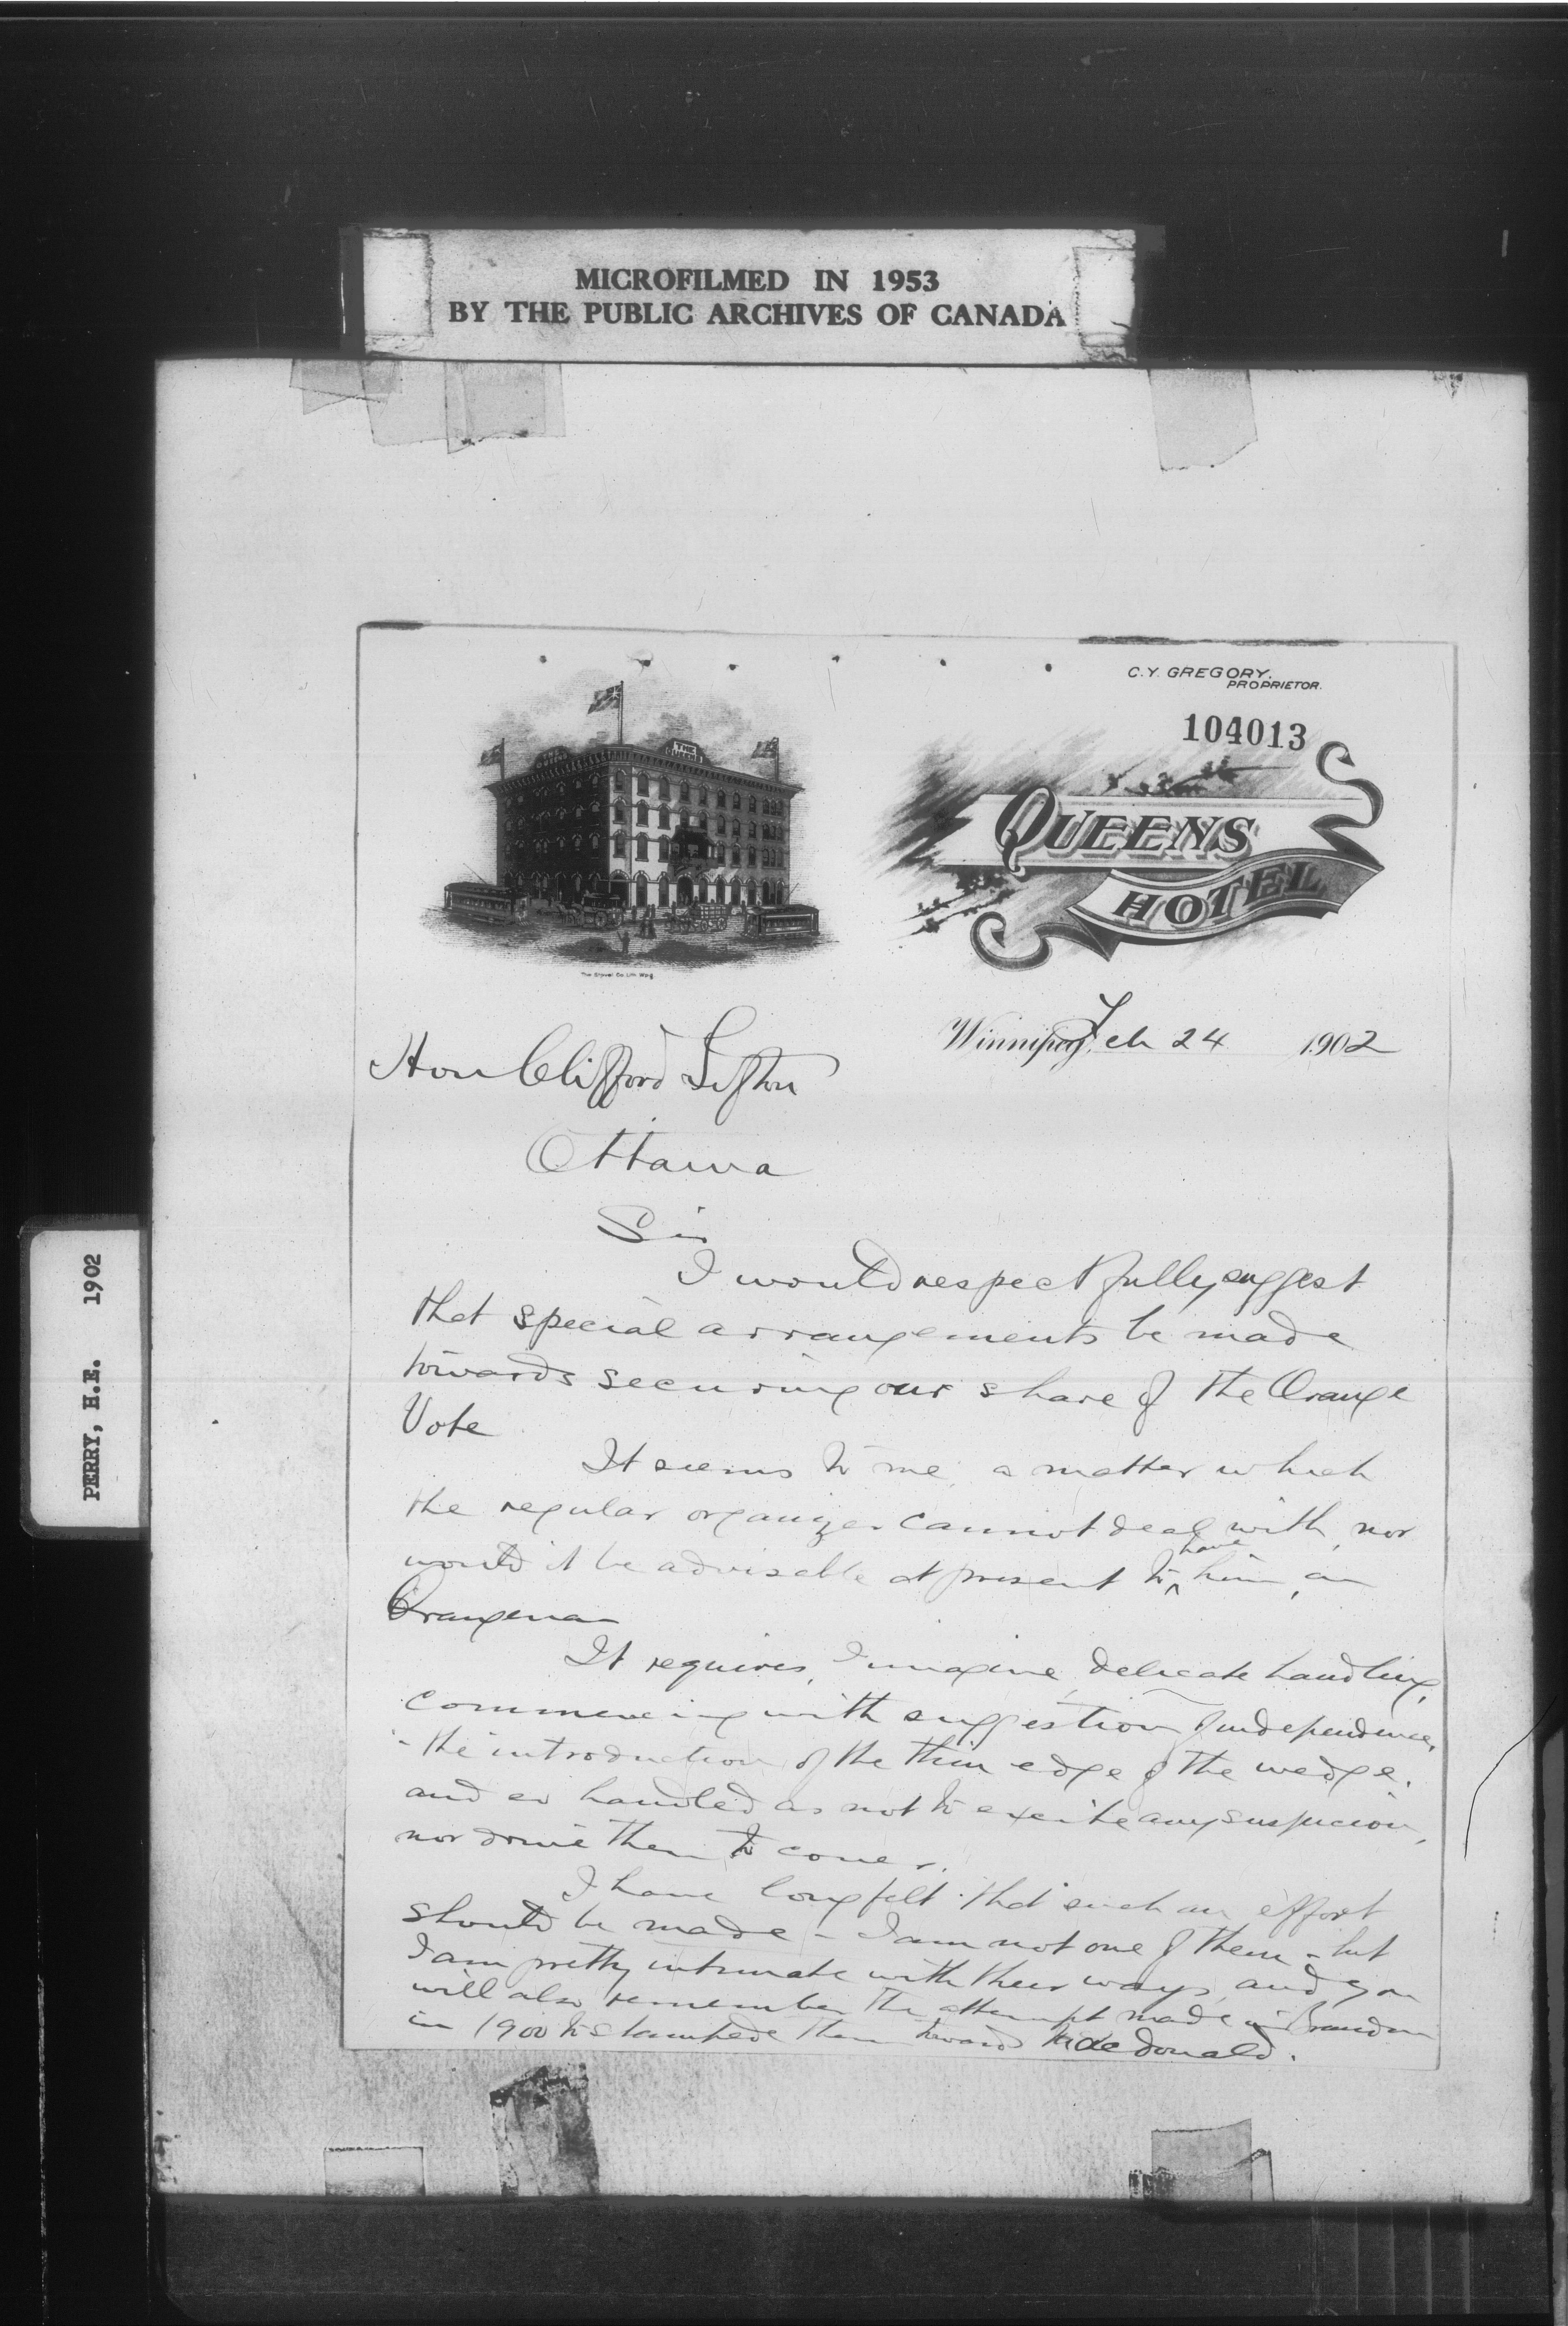 MICROFILMED IN 1953
BY THE PUBLIC ARCHIVES OF CANADA
PERRY, H.E. 1902
C.Y. GREGORY.
PROPRIETOR.
104013
QUEENS
HOTEL
THE
Winnipeg, Feb 24 1902
Hon Clifford Sifton
Ottawa
Sir
I would respectfully suggest
that special arrangements be made
towards securing our share of the Orange
Vote
It seems to me, a matter which
the regular organizer cannot deal with, nor
would it be advisable at present to have him, an
Orangeman
It requires, I imagine, delicate handling,
commencing with suggestion of independence,
- the introduction of the thin edge of the wedge.
and so handled as not to excite any suspicion,
nor drive them to cover.
I have long felt that such an effort
should be made - I am not one of them - but
I am pretty intimate with their ways, and you
will also remember the attempt made in Brandon
in 1900 to stampede them toward Macdonald.